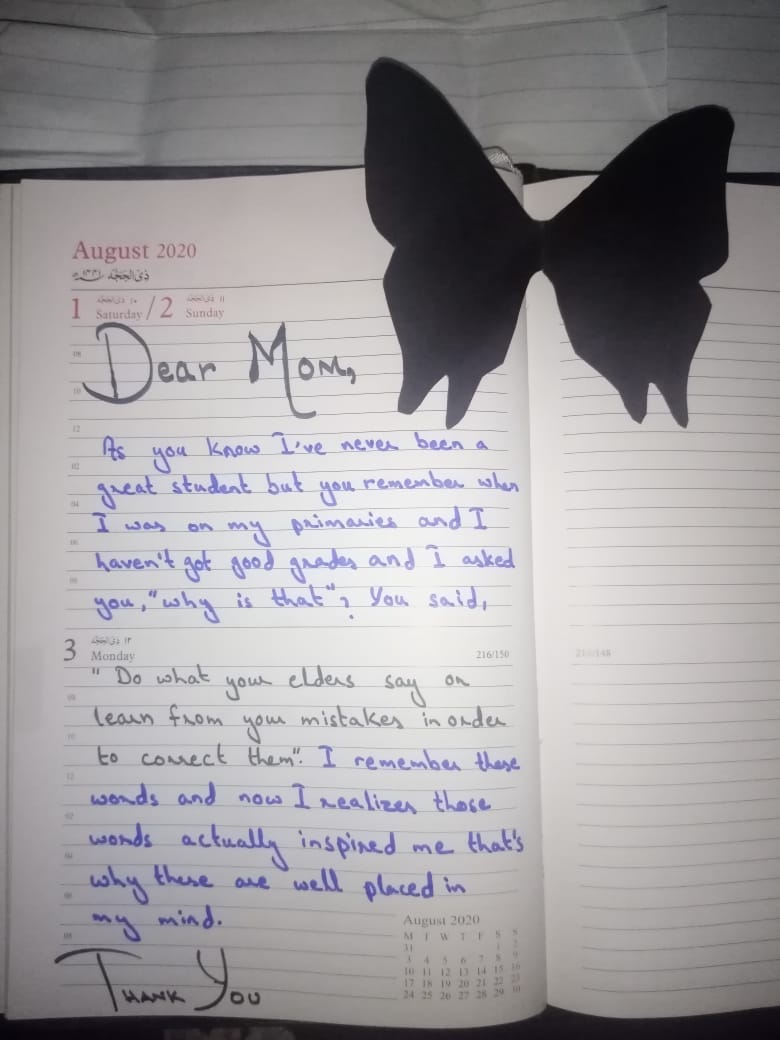 August 2020
1 Saturday / 2 Sunday
08
Dear Mom,
10
12
As you know I've never been a
02
great student but you remember when
04
I was on my primaries and I
06
haven't got good grades and I asked
08
you, "why is that"? You said,
3 Monday
216/150
"Do what your elders say or
learn from your mistakes in order
10
to correct them". I remember these
12
words and now I realizes those
02
words actually inspired me that's
04
why these are well placed in
06
my mind.
08
August 2020
M T W T F S S
31 1 2
3 4 5 6 7 8 9
10 11 12 13 14 15 16
17 18 19 20 21 22 23
24 25 26 27 28 29 30
Thank You